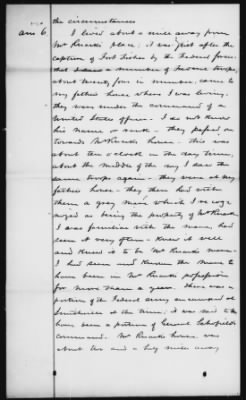 the circumstances
Ans 6. I lived about a mile away from
Mr place; it was just after the
capture of Fort Fisher by the Federal forces
that a number of Federal troops
about twenty four in number, came to
my father's house where I was living;
they were under the command of a
United States officer. I do not know
his name, or rank - they passed on
towards house - this was
about ten o'clock in the day time,
about the middle of the day I saw the
same troops again - they were at my
father's house - they then had with
them a gray mare, which I recog-
nized as being the property of Mr
I was familiar with the mare, had
seen it very often - knew it well
and knew it to be Mr mare -
I had seen and known the mare to
have been in Mr possession
for more than a year. There was a
portion of the Federal army encamped at
Smithville at the time; it was said to
have been a portion of General Schofield's
command. Mr house was
about two and a half miles away